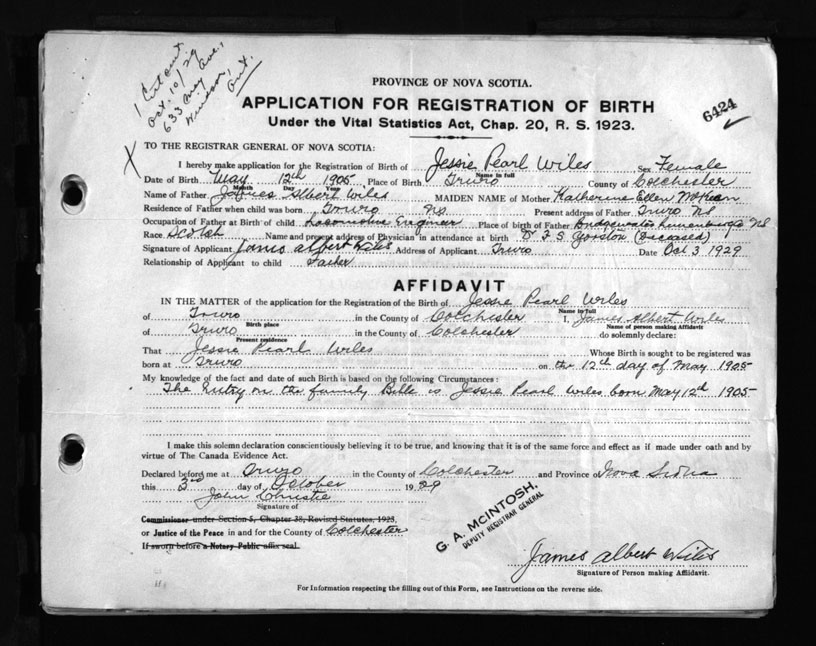 1 Cert out.
Oct. 10/29
633 Ave,
Windsor,
Ont.
PROVINCE OF NOVA SCOTIA.
APPLICATION FOR REGISTRATION OF BIRTH
Under the Vital Statistics Act, Chap. 20, R. S. 1923.
6424
X TO THE REGISTRAR GENERAL OF NOVA SCOTIA:
I hereby make application for the Registration of Birth of Jessie Pearl Wiles Sex Female
Name in full
Date of Birth May 12th 1905 Place of Birth Truro County of Colchester
Month Day Year
Name of Father James Albert Wiles MAIDEN NAME of Mother Katherine Ellen McKean
Residence of Father when child was born Truro NS. Present address of Father Truro NS
Occupation of Father at Birth of child Locomotive Engineer Place of birth of Father Bridgewater Lunenburg Co NS
Race Scotch Name and present address of Physician in attendance at birth Dr F S Yorston (Deceased)
Signature of Applicant James Albert Wiles Address of Applicant Truro Date Oct 3 1929
Relationship of Applicant to child Father
AFFIDAVIT
IN THE MATTER of the application for the Registration of the Birth of Jessie Pearl Wiles
Name in full
of Truro in the County of Colchester I, James Albert Wiles
Birth place Name of person making Affidavit
of Truro in the County of Colchester do solemnly declare:
Present residence
That Jessie Pearl Wiles Whose Birth is sought to be registered was
born at Truro on the 12th day of May 1905
My knowledge of the fact and date of such Birth is based on the following Circumstances:
The Entry on the family Bible is Jessie Pearl Wiles born May 12th 1905
I make this solemn declaration conscientiously believing it to be true, and knowing that it is of the same force and effect as if made under oath and by
virtue of The Canada Evidence Act.
Declared before me at Truro in the County of Colchester and Province of Nova Scotia
this 3rd day of October 1929
John Christie
Signature of
Commissioner under Section 5, Chapter 38, Revised Statutes, 1923,
or Justice of the Peace in and for the County of Colchester
If sworn before a Notary Public affix seal.
G. A. McINTOSH,
DEPUTY REGISTRAR GENERAL
James Albert Wiles
Signature of Person making Affidavit.
For Information respecting the filling out of this Form, see Instructions on the reverse side.